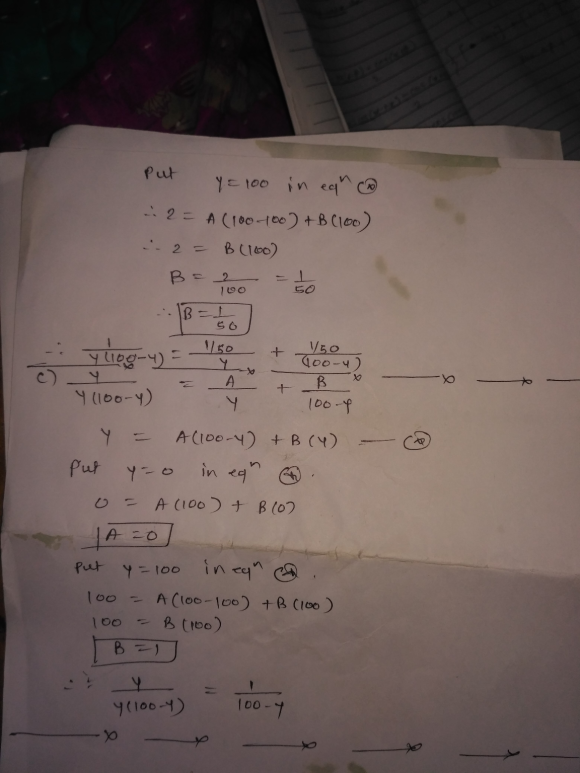 Put y=100 in eqⁿ (*)
∴ 2 = A(100-100) + B(100)
∴ 2 = B(100)
B = 2/100 = 1/50
∴ B = 1/50
∴ 1/y(100-y) = 1/50/y + 1/50/(100-y)
c) y/y(100-y) = A/y + B/100-y
y = A(100-y) + B(y) — (*)
Put y=0 in eqⁿ (*).
0 = A(100) + B(0)
A = 0
Put y=100 in eqⁿ (*).
100 = A(100-100) + B(100)
100 = B(100)
B = 1
∴ y/y(100-y) = 1/100-y